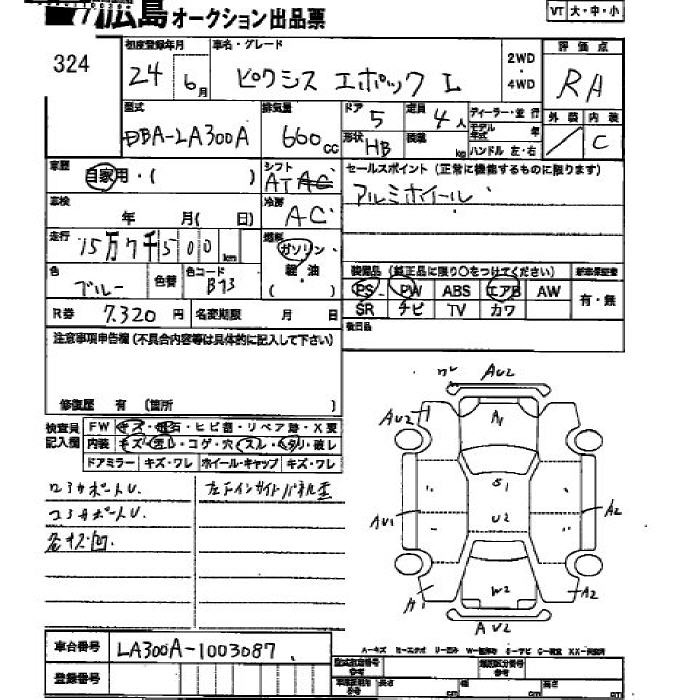 広島 オークション出品票
VT 大・中・小
324
初度登録年月
24 年 6月
車名・グレード
ピクシス エポック L
2WD
・
4WD
評価点
RA
型式
DBA-LA300A
排気量
660 cc
ドア 5
定員 4人
形状 HB
積載 kg
ディーラー・並行
モデル年式 年
ハンドル 左・右
外装 内装
/ C
車歴
自家用・( )
シフト
AT AC
セールスポイント (正常に機能するものに限ります)
アルミホイール
車検
年 月( 日)
冷房
AC
走行
15万7千500 km
燃料
ガソリン
軽・油
( )
色
ブルー
色替
色コード
B73
装備品 (純正品に限り○をつけてください)
新車保証書
PS PW ABS エアB AW
SR ナビ TV カワ
有・無
R券 7,320 円
名変期限 月 日
後日品
注意事項申告欄 (不具合内容等は具体的に記入して下さい)
修復歴 有 (箇所 )
検査員
記入欄
FW キズ・飛石・ヒビ割・リペア跡・X要
内装 キズ・汚レ・コゲ・穴・スレ・ヘタリ・破レ
ドアミラー キズ・ワレ ホイール・キャップ キズ・ワレ
コアサポートU.
左Fインサイドパネル歪
コアサポートU.
各キズ凹
AU2
AU2
A1
S1
U2
AU1
A2
W2
A1
A2
AU2
車台番号
LA300A-1003087
登録番号
長さ cm 幅 cm 高さ cm